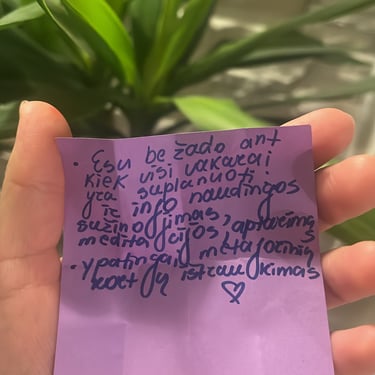 • Esu be žado ant
kiek visi vakarai
yra suplanuoti!
ir info naudingos
sužinojimas,
meditacijos, aptarimas
• Ypatingai, metaforinių
kortų ištraukimas
♡